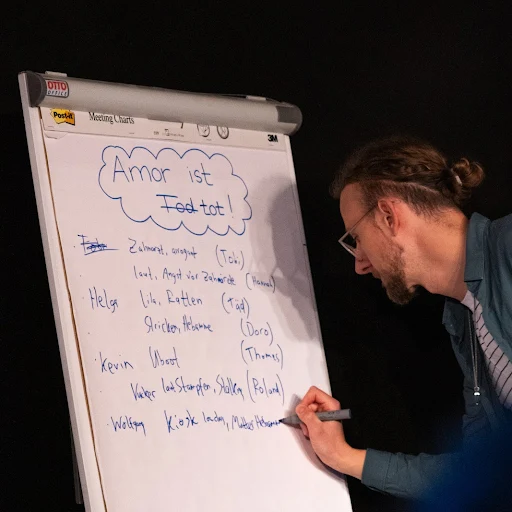 OTTO
OFFICE
Post-it Meeting Charts
3M
Amor ist
Tod tot!
Zahnarzt, arrogant (Tobi)
laut, Angst vor Zahnärzte (Hannah)
Helga Lila, Ratten (Tad)
Stricken, Hebamme (Doro)
· Kevin Uboot (Thomas)
laut Stampfen, Stalking (Roland)
· Wolfgang Kiosk laden, Mutter Hebamme